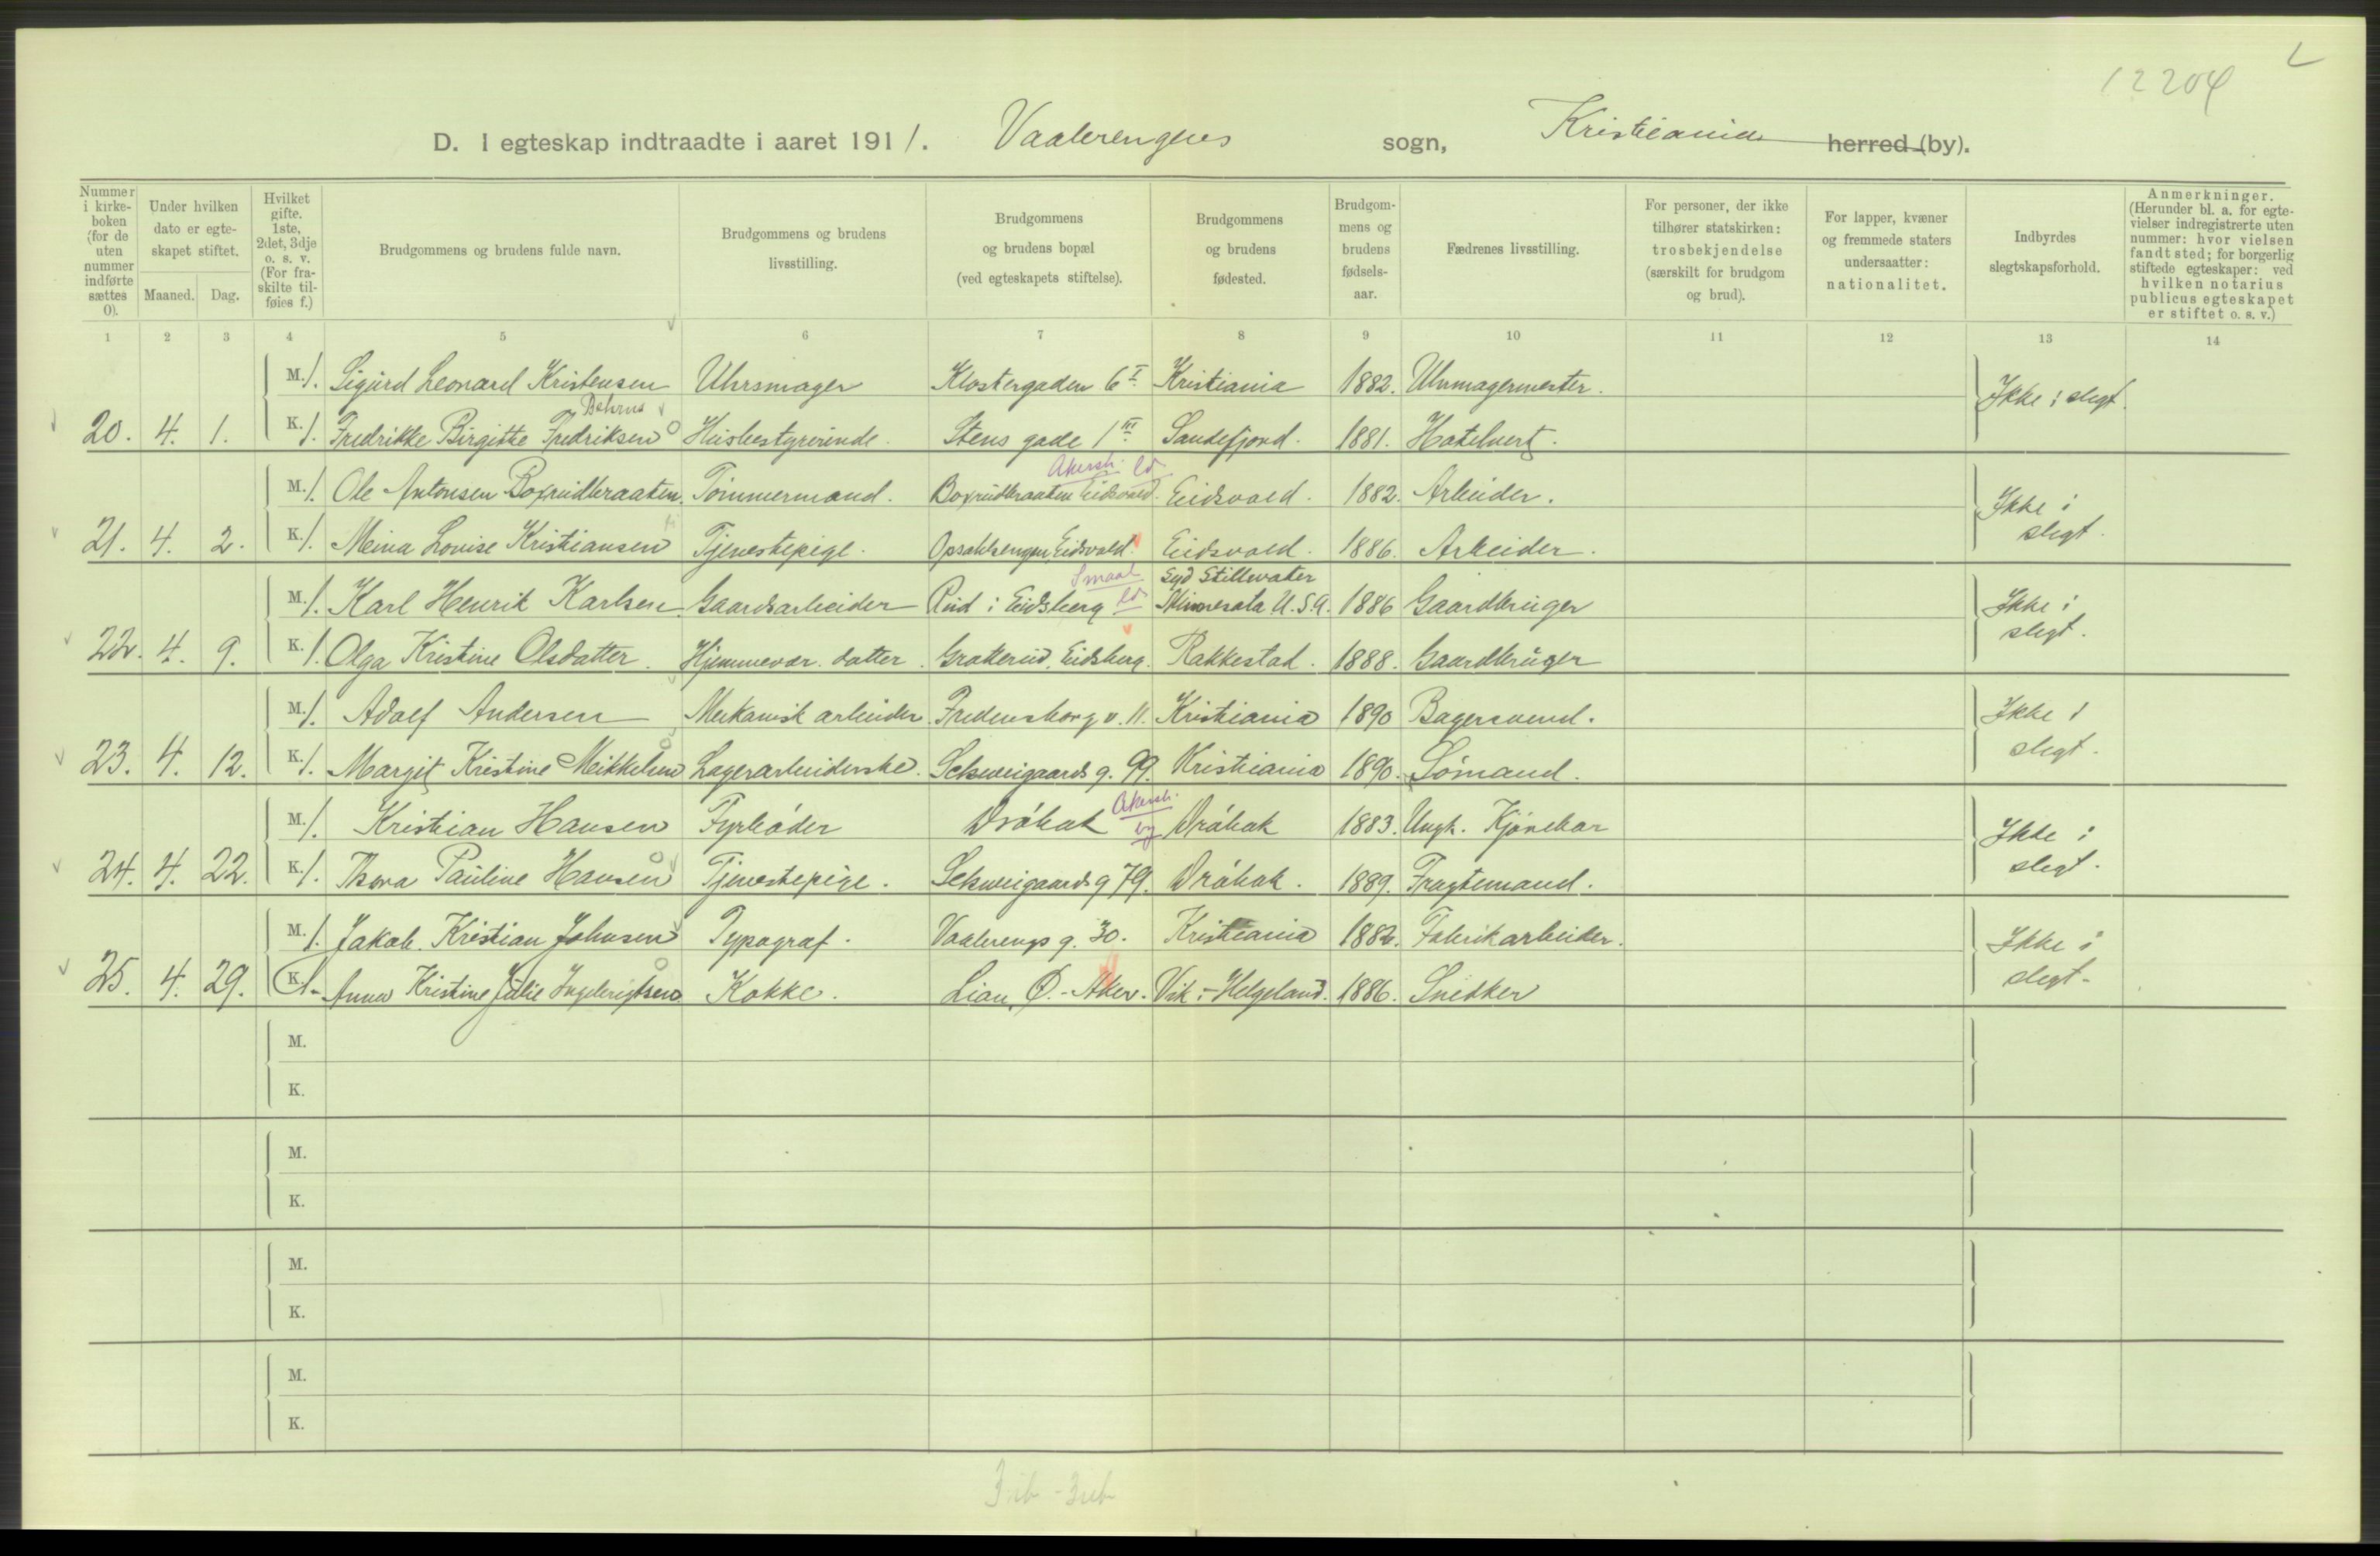 L
12204
D. I egteskap indtraadte i aaret 1911. Vaalerengens sogn, Kristiania herred (by).
Nummer i kirkeboken (for de uten nummer indførte sættes 0).
Under hvilken dato er egteskapet stiftet.
Maaned. Dag.
Hvilket gifte. 1ste, 2det, 3dje o. s. v. (For fraskilte tilføies f.)
Brudgommens og brudens fulde navn.
Brudgommens og brudens livsstilling.
Brudgommens og brudens bopæl (ved egteskapets stiftelse).
Brudgommens og brudens fødested.
Brudgommens og brudens fødselsaar.
Fædrenes livsstilling.
For personer, der ikke tilhører statskirken: trosbekjendelse (særskilt for brudgom og brud).
For lapper, kvæner og fremmede staters undersaatter: nationalitet.
Indbyrdes slegtskapsforhold.
Anmerkninger. (Herunder bl. a. for egtevielser indregistrerte uten nummer: hvor vielsen fandt sted; for borgerlig stiftede egteskaper: ved hvilken notarius publicus egteskapet er stiftet o. s. v.)
1 2 3 4 5 6 7 8 9 10 11 12 13 14
M. 1. Sigurd Leonard Kristensen Uhrsmager Klostergaden 6 I Kristiania 1882. Uhrmagermester. Ikke i slegt.
Behrns
20. 4. 1. K. 1. Fredrikke Birgitte Fredriksen Husbestyrerinde. Stens gade 1 III Sandefjord. 1881. Hotelvert.
Akersh. ld
M. 1. Ole Antonsen Boxrudbraaten. Tømmermand. Boxrudbraaten Eidsvold. Eidsvold. 1882. Arbeider. Ikke i
21. 4. 2. K. 1. Meina Lovise Kristiansen Tjenestepige. Opsahlsengen, Eidsvold. Eidsvold. 1886. Arbeider. slegt.
Smaal. Syd Stillwater
M. 1. Karl Henrik Karlsen Gaardsarbeider Rud i Eidsberg ld Minnesota U.S.A. 1886 Gaardbruger Ikke i
22. 4. 9. K. 1. Olga Kristine Olsdatter. Hjemmevær. datter. Grotterud, Eidsberg. Rakkestad. 1888. Gaardbruger slegt.
M. 1. Adolf Andersen Mekanisk arbeider. Fredensborg v. 11. Kristiania 1890 Bagersvend. Ikke i
23. 4. 12. K. 1. Margit Kristine Mikkelsen Lagerarbeiderske. Schweigaards g. 99. Kristiania 1890. Sømand. slegt.
Akersh.
M. 1. Kristian Hansen Fyrbøder Drøbak by Drøbak 1883. Ungk. Ikke i
24. 4. 22. K. 1. Thora Pauline Hansen Tjenestepige. Schweigaards g 79. Drøbak. 1889. Fragtemand. slegt.
M. 1. Jakob Kristian Johnsen Typograf. Vaalerengs g. 30. Kristiania 1882. Fabrikarbeider. Ikke i
25. 4. 29. K. 1. Anna Kristine Julie Ingebrigtsen Kokke. Lian, Ø. - Aker. Vik i Helgeland. 1886. Snedker slegt.
M.
K.
M.
K.
M.
K.
M.
K.